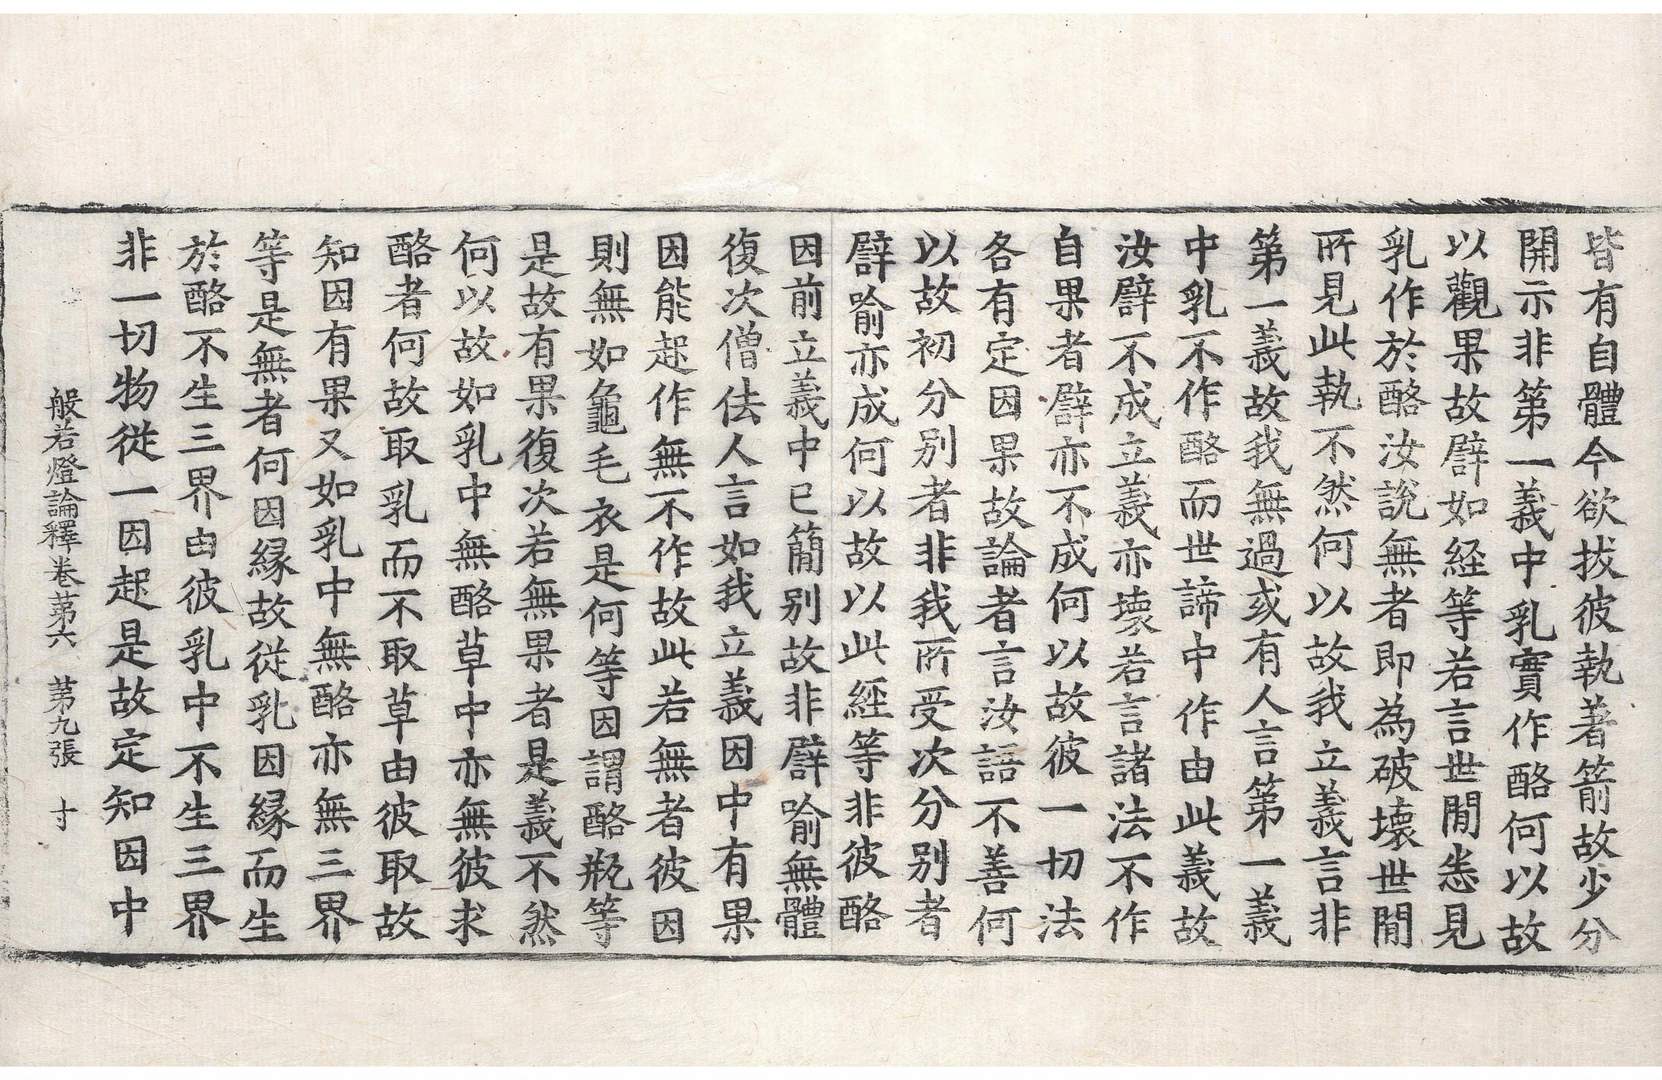 皆有自體今欲拔彼執著箭故少分
開示非第一義中乳實作酪何以故
以觀果故譬如經等若言世閒悉見
乳作於酪汝說無者即為破壞世閒
所見此執不然何以故我立義言非
第一義故我無過或有人言第一義
中乳不作酪而世諦中作由此義故
汝譬不成立義亦壞若言諸法不作
自果者譬亦不成何以故彼一切法
各有定因果故論者言汝語不善何
以故初分別者非我所受次分別者
譬喻亦成何以故以此經等非彼酪
因前立義中已簡別故非譬喻無體
復次僧佉人言如我立義因中有果
因能起作無不作故此若無者彼因
則無如龜毛衣是何等因謂酪瓶等
是故有果復次若無果者是義不然
何以故如乳中無酪草中亦無彼求
酪者何故取乳而不取草由彼取故
知因有果又如乳中無酪亦無三界
等是無者何因緣故從乳因緣而生
於酪不生三界由彼乳中不生三界
非一切物從一因起是故定知因中
般若燈論釋卷苐六 苐九張 寸